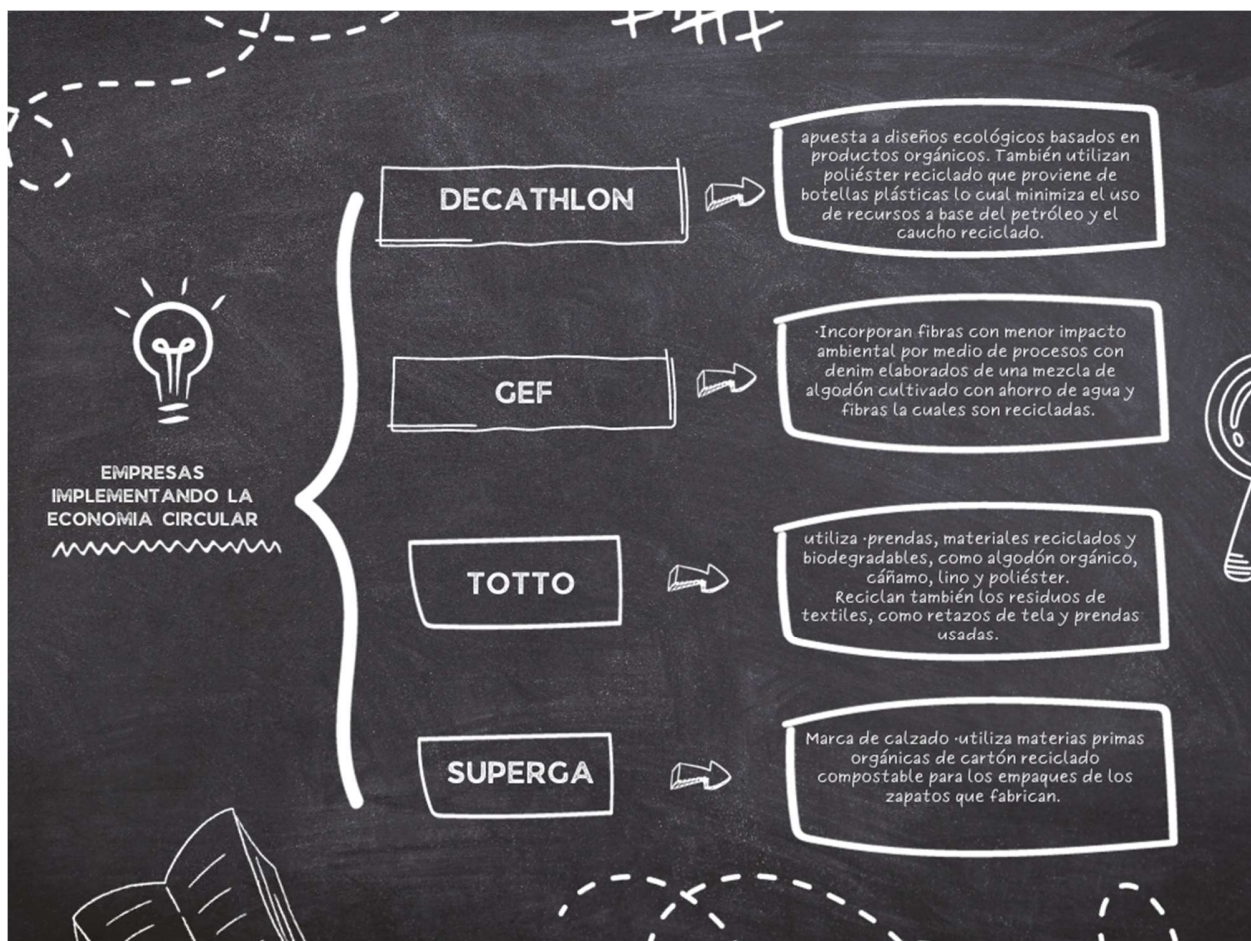 EMPRESAS
IMPLEMENTANDO LA
ECONOMIA CIRCULAR
DECATHLON
apuesta a diseños ecológicos basados en
productos orgánicos. También utilizan
poliéster reciclado que proviene de
botellas plásticas lo cual minimiza el uso
de recursos a base del petróleo y el
caucho reciclado.
GEF
·Incorporan fibras con menor impacto
ambiental por medio de procesos con
denim elaborados de una mezcla de
algodón cultivado con ahorro de agua y
fibras la cuales son recicladas.
TOTTO
utiliza ·prendas, materiales reciclados y
biodegradables, como algodón orgánico,
cáñamo, lino y poliéster.
Reciclan también los residuos de
textiles, como retazos de tela y prendas
usadas.
SUPERGA
Marca de calzado ·utiliza materias primas
orgánicas de cartón reciclado
compostable para los empaques de los
zapatos que fabrican.